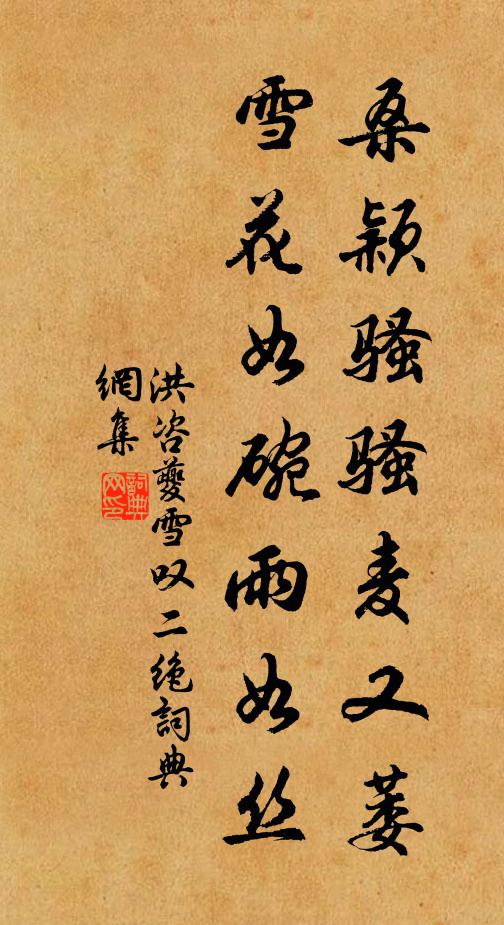 桑颖骚骚麦又萎
雪花如碗雨如丝
洪咨夔雪叹二绝詞典
網集
詞典
网印